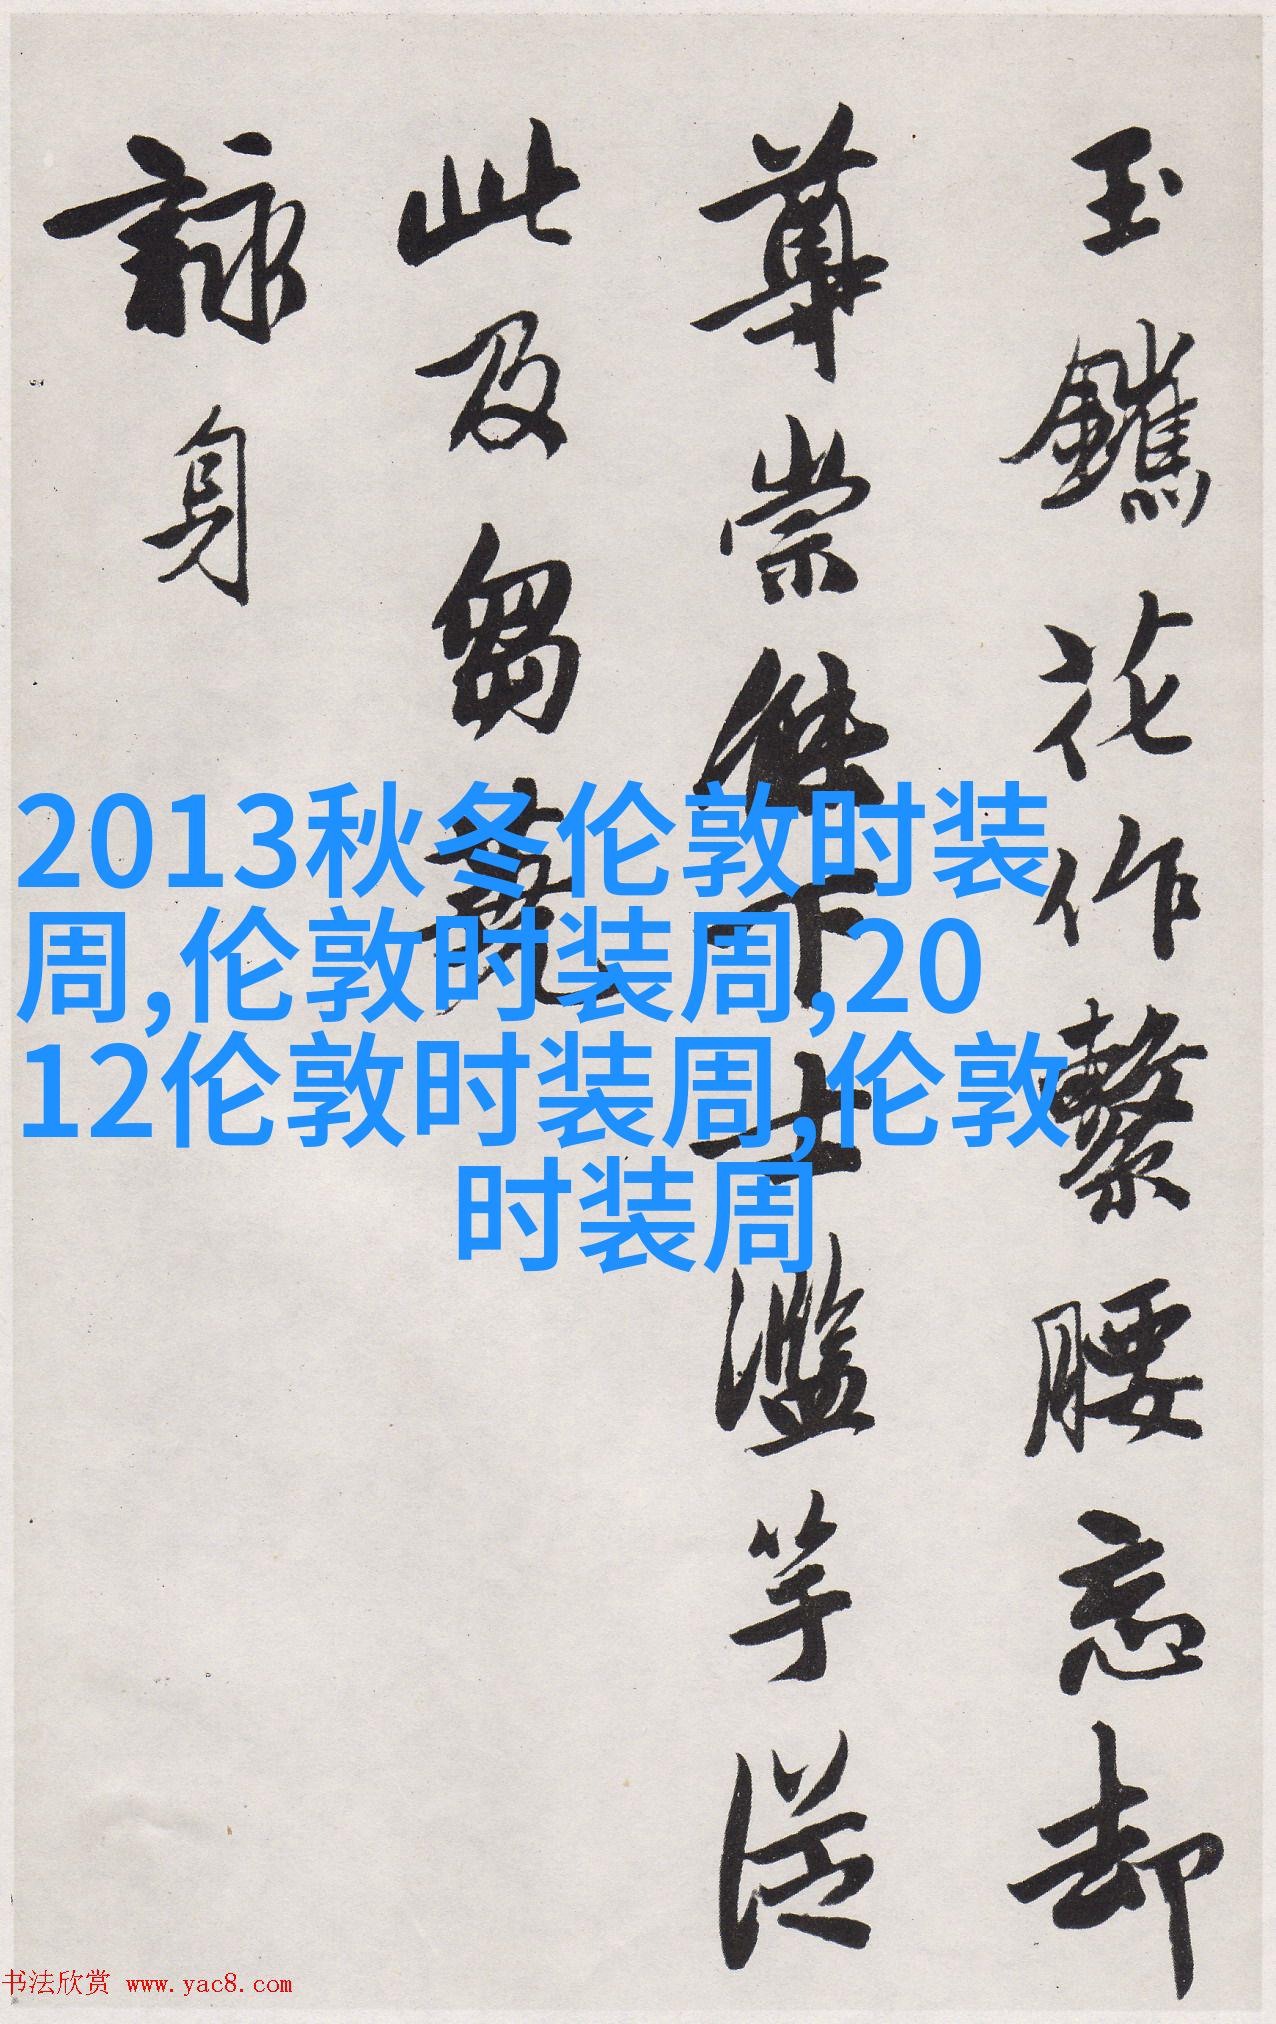 玉花作繫腰忘却
崇傑下士濫竽從
此及芻蕘
詠身
2013秋冬伦敦时装
周,伦敦时装周,20
12伦敦时装周,伦敦
时装周
书法欣赏 www.yac8.com